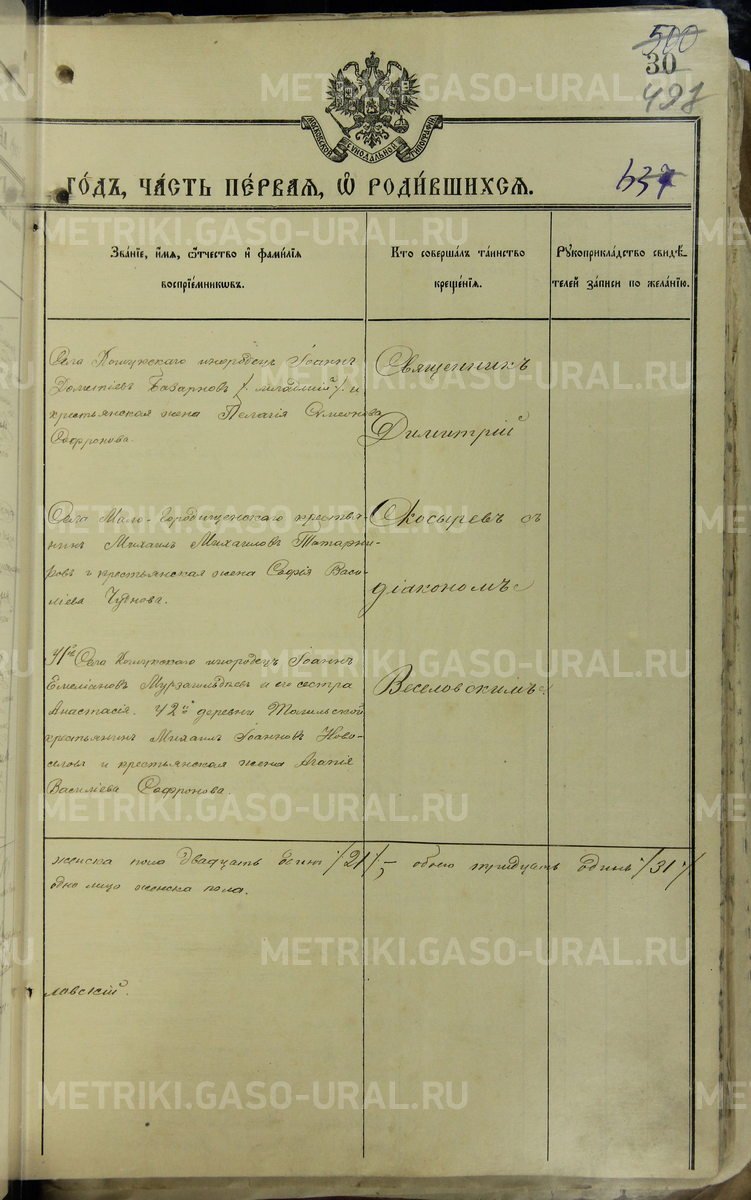 500
30
498
МОСКОВСКОЙ СѴНОДАЛЬНОЙ ТИПОГРАФІИ
637
ГО́ДЪ, ЧА́СТЬ ПЕ́РВАЯ, Ѽ РОДИ́ВШИХСЯ.
Зва́ніе, и́мя, ѻ҆́тчество и҆ фами́лїя
воспрїе́мникѡвъ.
Кто соверша́лъ та́инство
креще́нїя.
Рꙋкоприкла́дство свидѣ́-
телей за́писи по жела́нїю.
Села Кошукскаго инородецъ Іоаннъ
Дометіевъ Базарновъ /младшій/ и
крестьянская жена Пелагія Симеонова
Софронова.
Священникъ
Димитрій
Села Мало-Городищенскаго крестья-
нинъ Михаилъ Михаиловъ
и крестьянская жена Софія Васи-
ліева Чуднова.
Косыревъ съ
діакономъ
41й Села Кошукскаго инородецъ Іоаннъ
Емеліановъ и его сестра
Анастасія. 42й деревни Тагильской
крестьянинъ Михаилъ Іоанновъ Ново-
селовъ и крестьянская жена Агапія
Василіева Софронова.
Веселовскимъ.
женска пола двадцать одинъ /21/, – обоего тридцать одинъ /31/
одно лицо женска пола.
ловскій.
METRIKI.GASO-URAL.RU